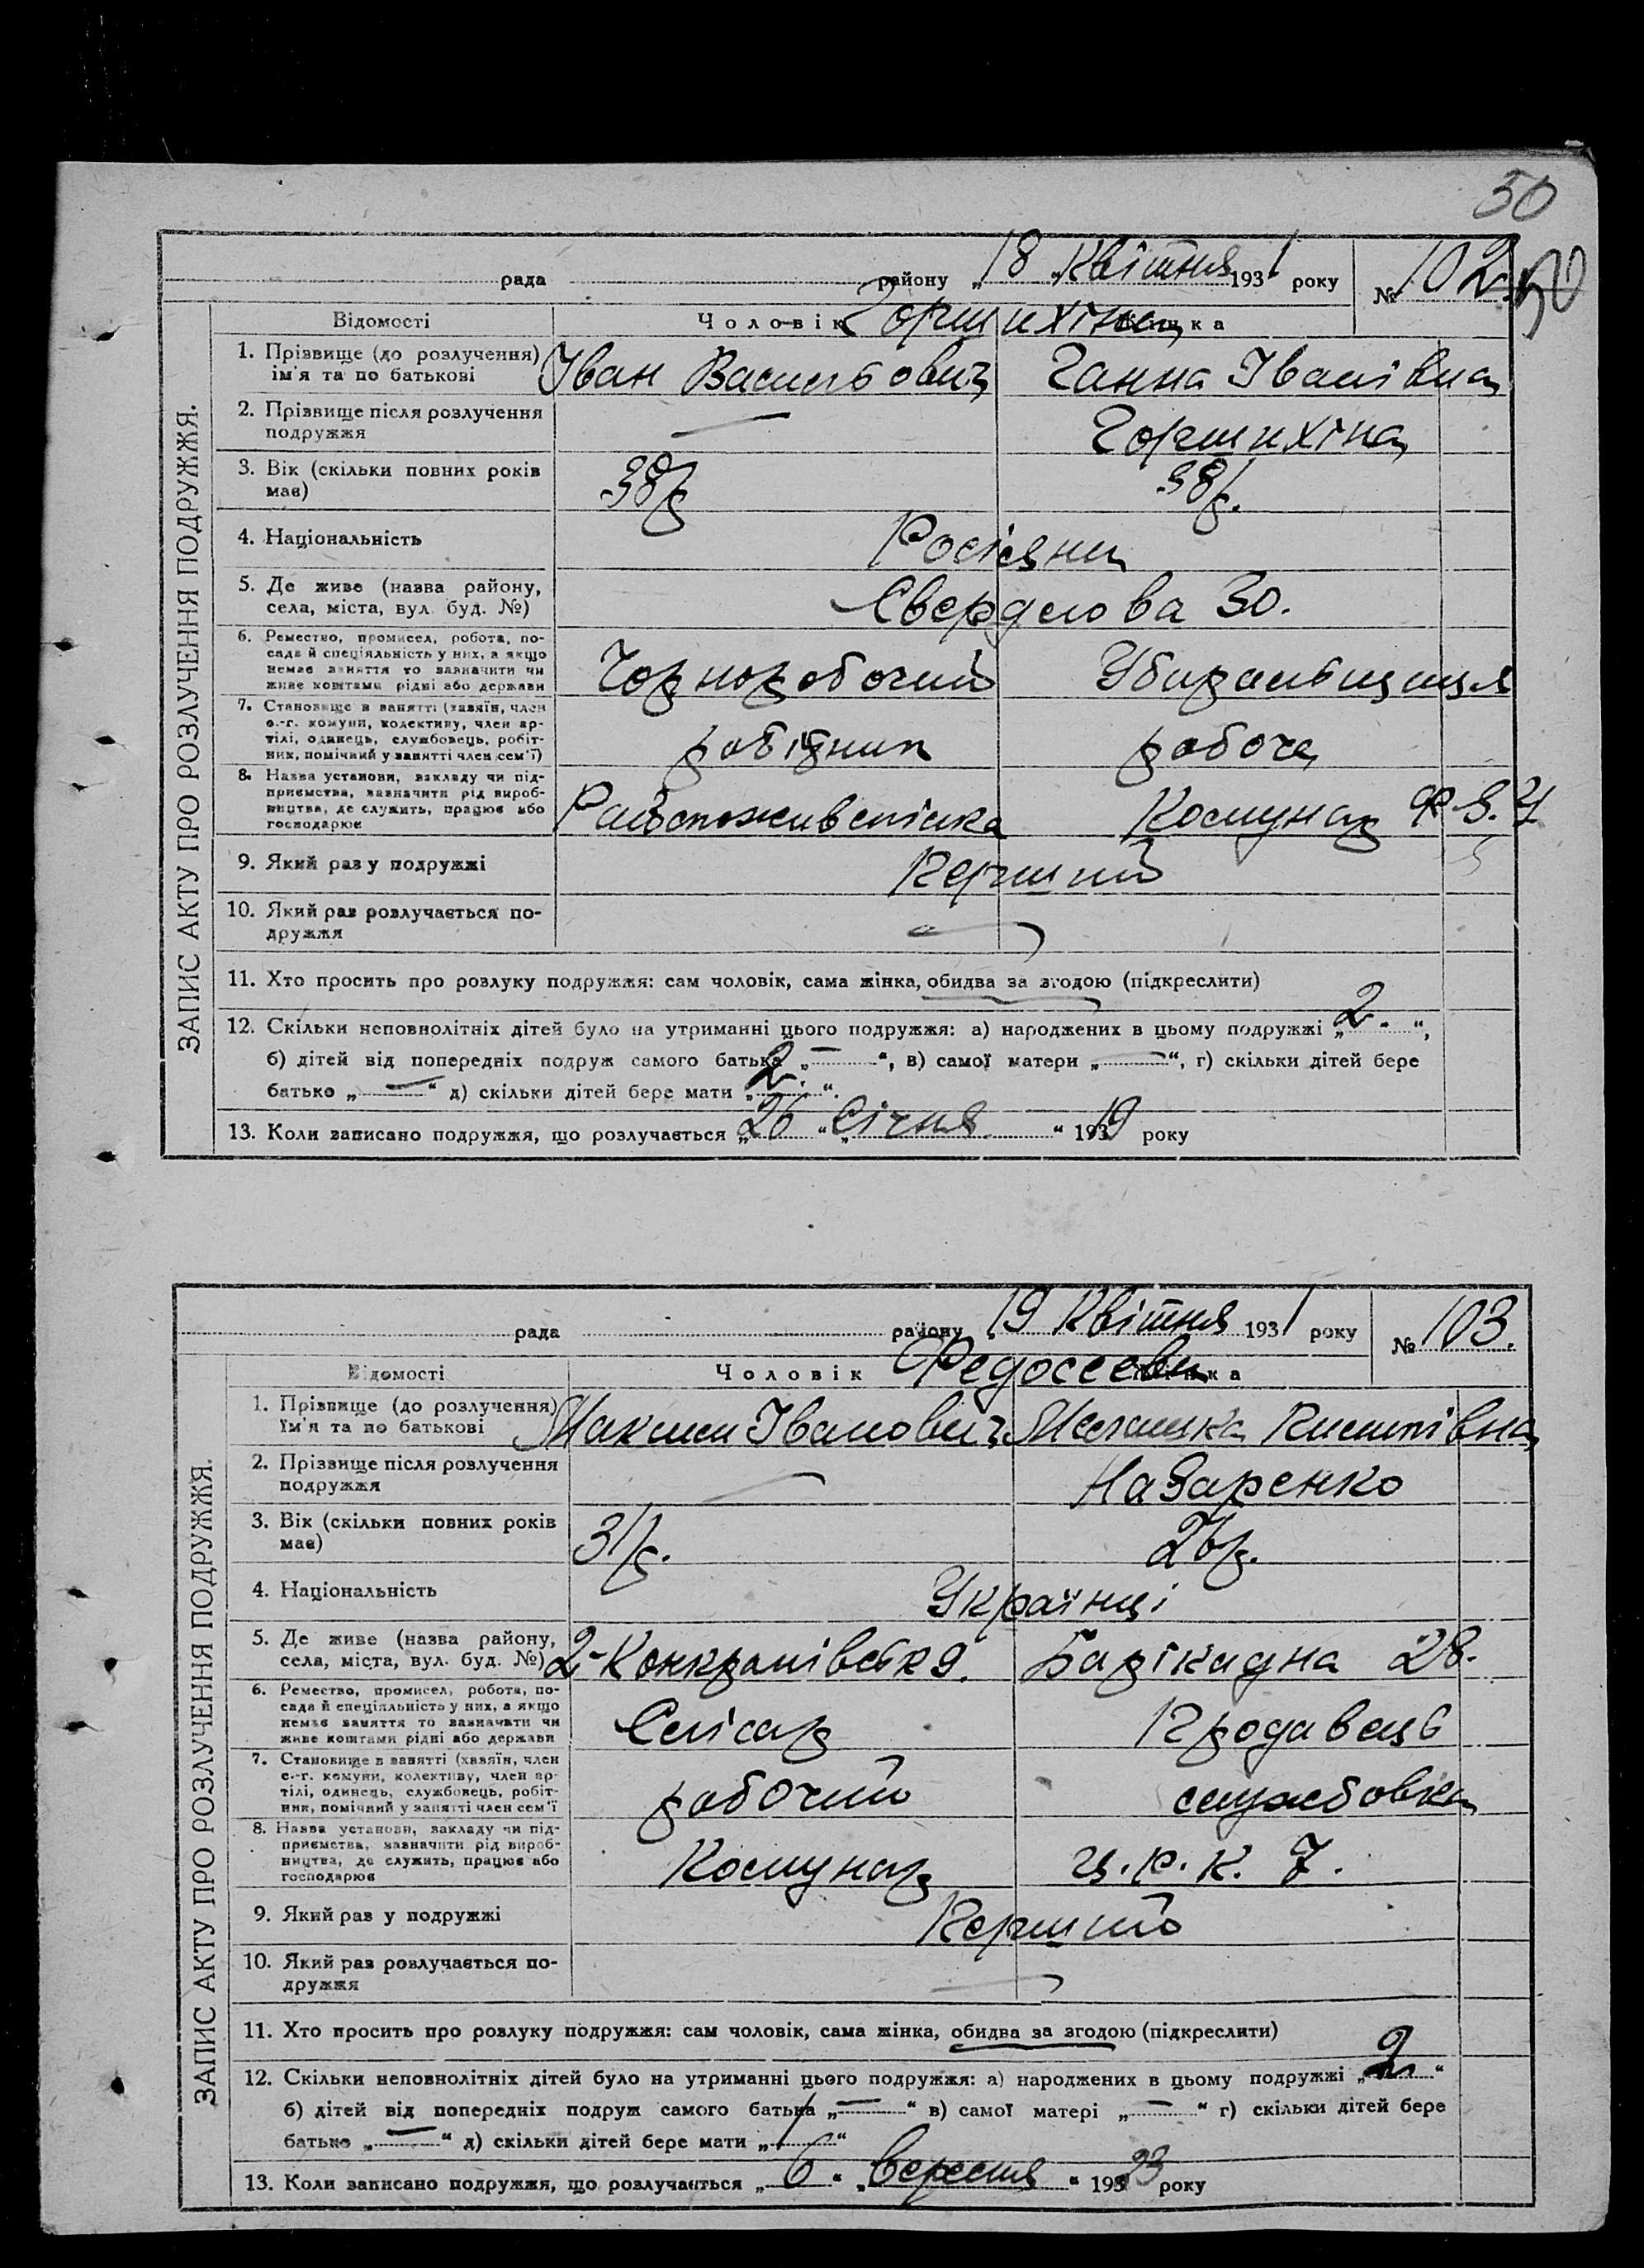 50
рада району „18 „Квітня 1931 року № 102. 50
ЗАПИС АКТУ ПРО РОЗЛУЧЕННЯ ПОДРУЖЖЯ.
Відомості Чоловік Жінка
Горшихіни
1. Прізвище (до розлучення) ім'я та по батькові Іван Васильович Ганна Іванівна
2. Прізвище після розлучення подружжя — Горшихіна
3. Вік (скільки повних років має) 38 р 38 р.
4. Національність Росіяни
5. Де живе (назва району, села, міста, вул. буд. №) Свердлова 30.
6. Ремество, промисел, робота, по-
сада й спеціяльність у них, а якщо
немає заняття то зазначити чи
живе коштами рідні або держави Чорноробочий Убиральщиця
7. Становище в занятті (хазяїн, член
с.-г. комуни, колективу, член ар-
тілі, одинець, службовець, робіт-
ник, помічний у занятті член сем'ї) робітник робоча
8. Назва установи, закладу чи під-
приємства, зазначити рід вироб-
ництва, де служить, працює або
господарює Райспоживспілка Комунар Ф.З.У
9. Який раз у подружжі Перший
10. Який раз розлучається по-
дружжя —
11. Хто просить про розлуку подружжя: сам чоловік, сама жінка, обидва за згодою (підкреслити)
12. Скільки неповнолітніх дітей було на утриманні цього подружжя: а) народжених в цьому подружжі „2.“,
б) дітей від попередніх подруж самого батька „—“, в) самої матери „—“, г) скільки дітей бере
батько „—“ д) скільки дітей бере мати „2.“.
13. Коли записано подружжя, що розлучається „26“ „Січня“ 1919 року
рада району 19 Квітня 1931 року № 103.
ЗАПИС АКТУ ПРО РОЗЛУЧЕННЯ ПОДРУЖЖЯ.
Відомості Чоловік Жінка
Федосєєви
1. Прізвище (до розлучення) їм'я та по батькові Максим Іванович Мелашка
2. Прізвище після розлучення подружжя — Назаренко
3. Вік (скільки повних років має) 31 р. 26 р.
4. Національність Українці
5. Де живе (назва району, села, міста, вул. буд. №) Барікадна 28.
6. Ремество, промисел, робота, по-
сада й спеціяльність у них, а якщо
немає заняття то зазначити чи
живе коштами рідні або держави Слісар Продавець
7. Становище в занятті (хазяїн, член
с.-г. комуни, колективу, член ар-
тілі, одинець, службовець, робіт-
ник, помічний у занятті член сем'ї робочий службовка
8. Назва установи, закладу чи під-
приємства, зазначити рід вироб-
ництва, де служить, працює або
господарює Комунар Ц.Р.К. 7.
9. Який раз у подружжі Перший
10. Який раз розлучається по-
дружжя —
11. Хто просить про розлуку подружжя: сам чоловік, сама жінка, обидва за згодою (підкреслити)
12. Скільки неповнолітніх дітей було на утриманні цього подружжя: а) народжених в цьому подружжі „2“
б) дітей від попередніх подруж самого батька „—“ в) самої матері „—“ г) скільки дітей бере
батько „—“ д) скільки дітей бере мати „1“
13. Коли записано подружжя, що розлучається „6“ „Вересня“ 1923 року